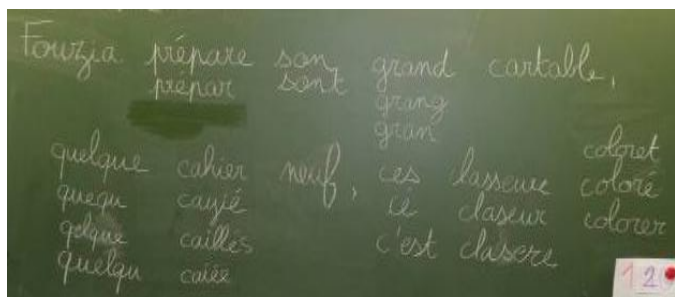 Fouzia prépare son grand cartable,
prépar sont grang
gran
quelque cahier neuf, ces lasseure coloret
quequ cayié ce claseur coloré
qelque caillés c'est clasere colorer
quelqu caiée
120